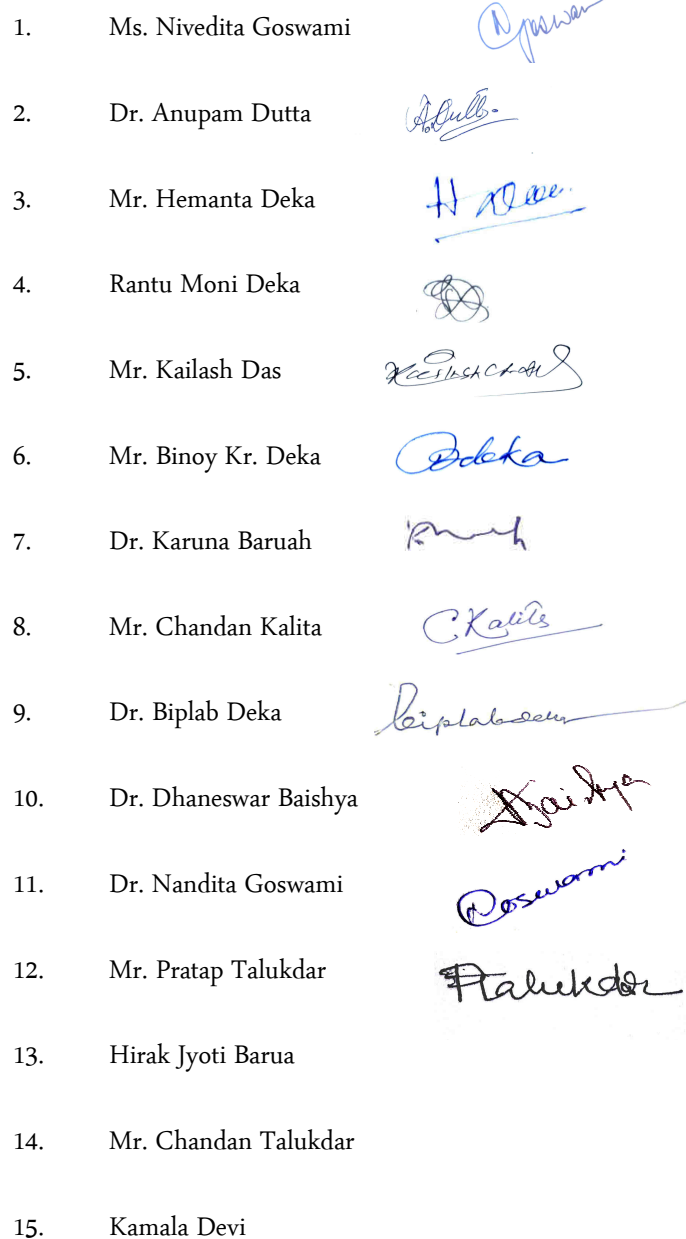 1. Ms. Nivedita Goswami
2. Dr. Anupam Dutta A.Dutta.
3. Mr. Hemanta Deka H Deka
4. Rantu Moni Deka
5. Mr. Kailash Das
6. Mr. Binoy Kr. Deka Bdeka
7. Dr. Karuna Baruah
8. Mr. Chandan Kalita C.Kalita
9. Dr. Biplab Deka Biplab Deka
10. Dr. Dhaneswar Baishya DBaishya
11. Dr. Nandita Goswami NGoswami
12. Mr. Pratap Talukdar PTalukdar
13. Hirak Jyoti Barua
14. Mr. Chandan Talukdar
15. Kamala Devi